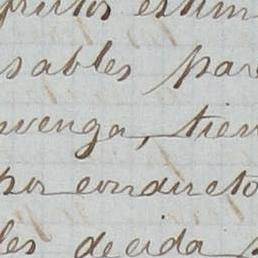 frutos estim
sables par
nvenga, tien
por conducto
les decida p